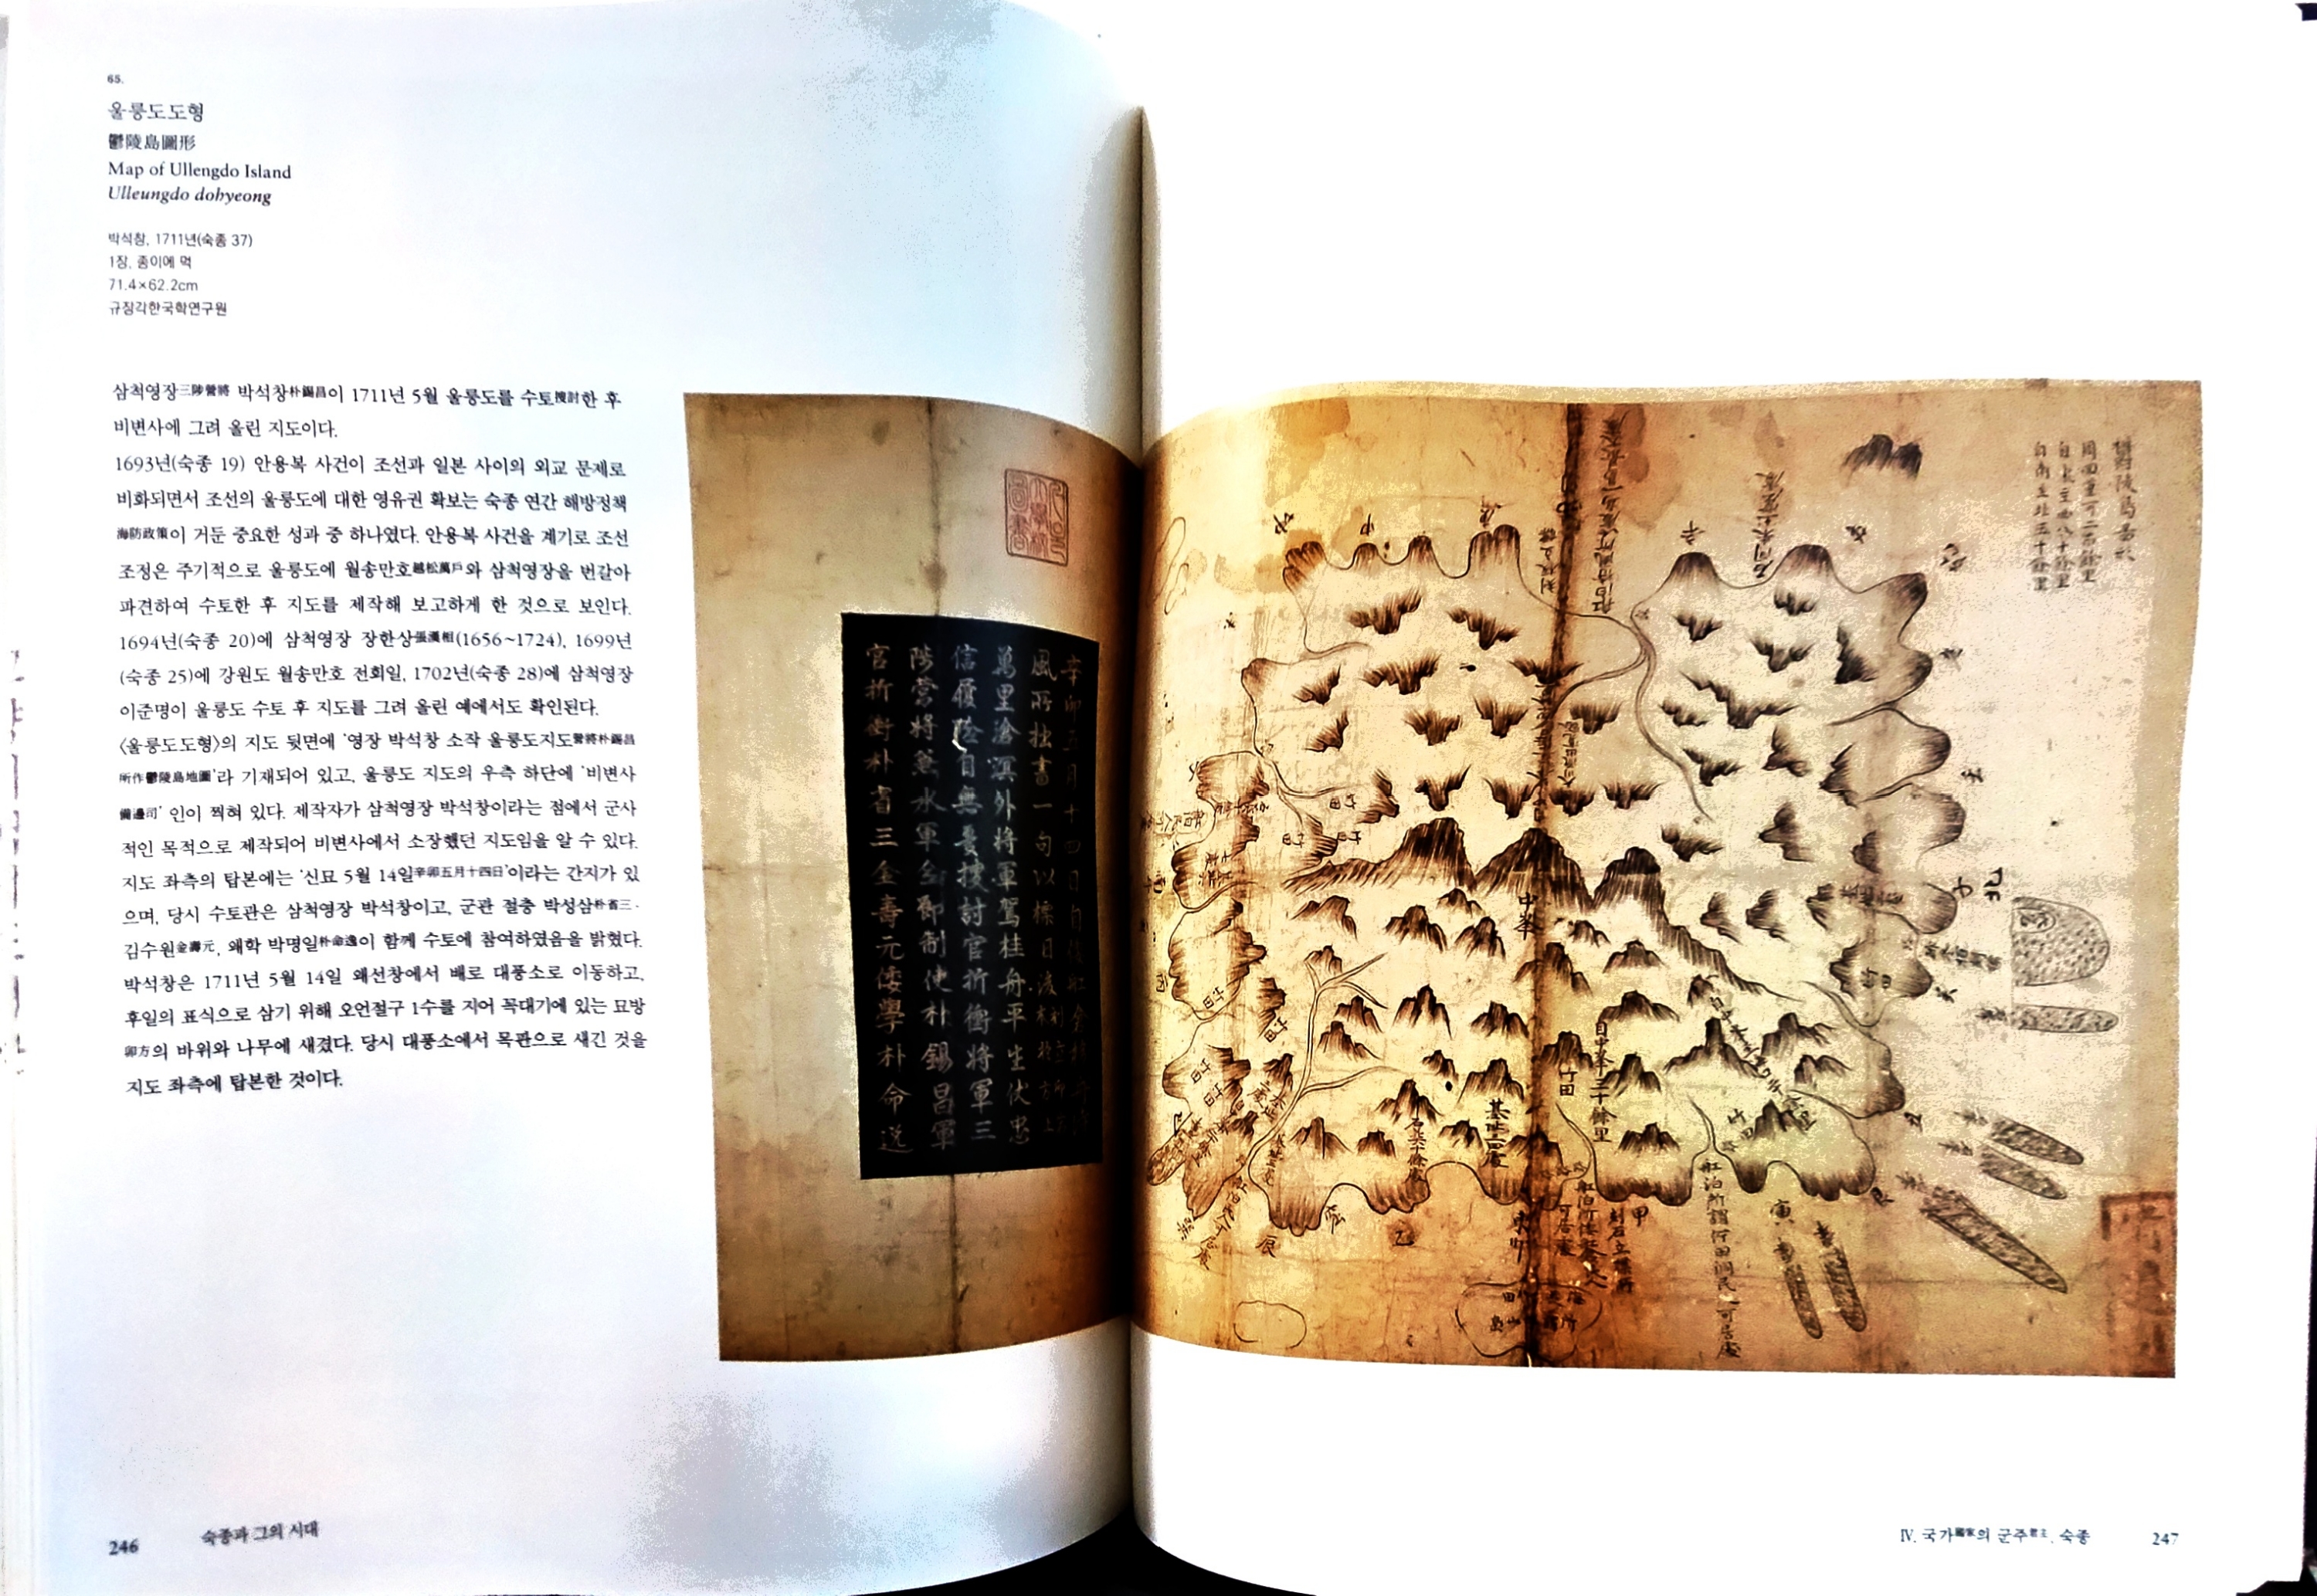 65.
울릉도도형
鬱陵島圖形
Map of Ullengdo Island
Ulleungdo dohyeong
박석창, 1711년(숙종 37)
1장, 종이에 먹
71.4×62.2cm
규장각한국학연구원
삼척영장三陟營將 박석창朴錫昌이 1711년 5월 울릉도를 수토搜討한 후
비변사에 그려 올린 지도이다.
1693년(숙종 19) 안용복 사건이 조선과 일본 사이의 외교 문제로
비화되면서 조선의 울릉도에 대한 영유권 확보는 숙종 연간 해방정책
海防政策이 거둔 중요한 성과 중 하나였다. 안용복 사건을 계기로 조선
조정은 주기적으로 울릉도에 월송만호越松萬戶와 삼척영장을 번갈아
파견하여 수토한 후 지도를 제작해 보고하게 한 것으로 보인다.
1694년(숙종 20)에 삼척영장 장한상張漢相(1656~1724), 1699년
(숙종 25)에 강원도 월송만호 전회일, 1702년(숙종 28)에 삼척영장
이준명이 울릉도 수토 후 지도를 그려 올린 예에서도 확인된다.
〈울릉도도형〉의 지도 뒷면에 '영장 박석창 소작 울릉도지도營將朴錫昌
所作鬱陵島地圖'라 기재되어 있고, 울릉도 지도의 우측 하단에 '비변사
備邊司' 인이 찍혀 있다. 제작자가 삼척영장 박석창이라는 점에서 군사
적인 목적으로 제작되어 비변사에서 소장했던 지도임을 알 수 있다.
지도 좌측의 탑본에는 '신묘 5월 14일辛卯五月十四日'이라는 간지가 있
으며, 당시 수토관은 삼척영장 박석창이고, 군관 절충 박성삼朴省三·
김수원金壽元, 왜학 박명일朴命逸이 함께 수토에 참여하였음을 밝혔다.
박석창은 1711년 5월 14일 왜선창에서 배로 대풍소로 이동하고,
후일의 표식으로 삼기 위해 오언절구 1수를 지어 꼭대기에 있는 묘방
卯方의 바위와 나무에 새겼다. 당시 대풍소에서 목판으로 새긴 것을
지도 좌측에 탑본한 것이다.
246
숙종과 그의 시대
鬱陵島圖形
周回二百餘里
自東至西八十餘里
自南至北五十餘里
辛卯五月十四日自
風所拙書一句以標日後
萬里滄溟外將軍駕桂舟平生伏忠
信履險自無憂搜討官折衝將軍三
陟營將兼水軍僉節制使朴錫昌軍
官折衝朴省三金壽元倭學朴命逸
中峯
北
自中峯三十餘里
竹田
竹田
石葬十餘處
基址二處
甲
乙
辰
寅
刻石立標
船泊所謂竹田洞民人可居處
IV. 국가國家의 군주君主, 숙종
247